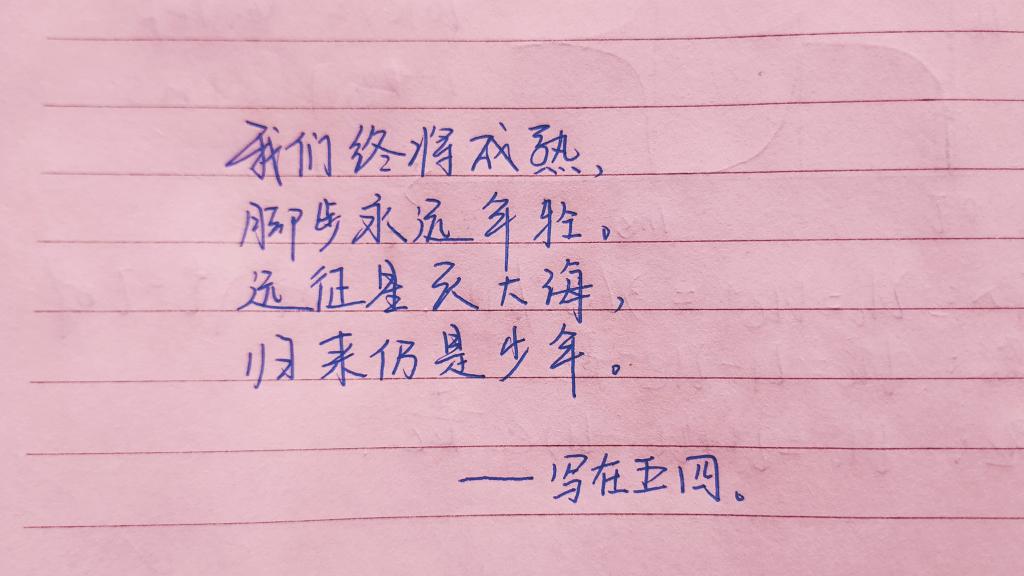 我们终将成熟，
脚步永远年轻。
远征星辰大海，
归来仍是少年。
——写在五四。